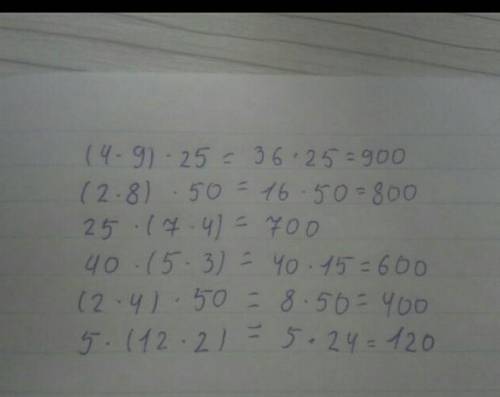 (4 · 9) · 25 = 36 · 25 = 900
(2 · 8) · 50 = 16 · 50 = 800
25 · (7 · 4) = 700
40 · (5 · 3) = 40 · 15 = 600
(2 · 4) · 50 = 8 · 50 = 400
5 · (12 · 2) = 5 · 24 = 120